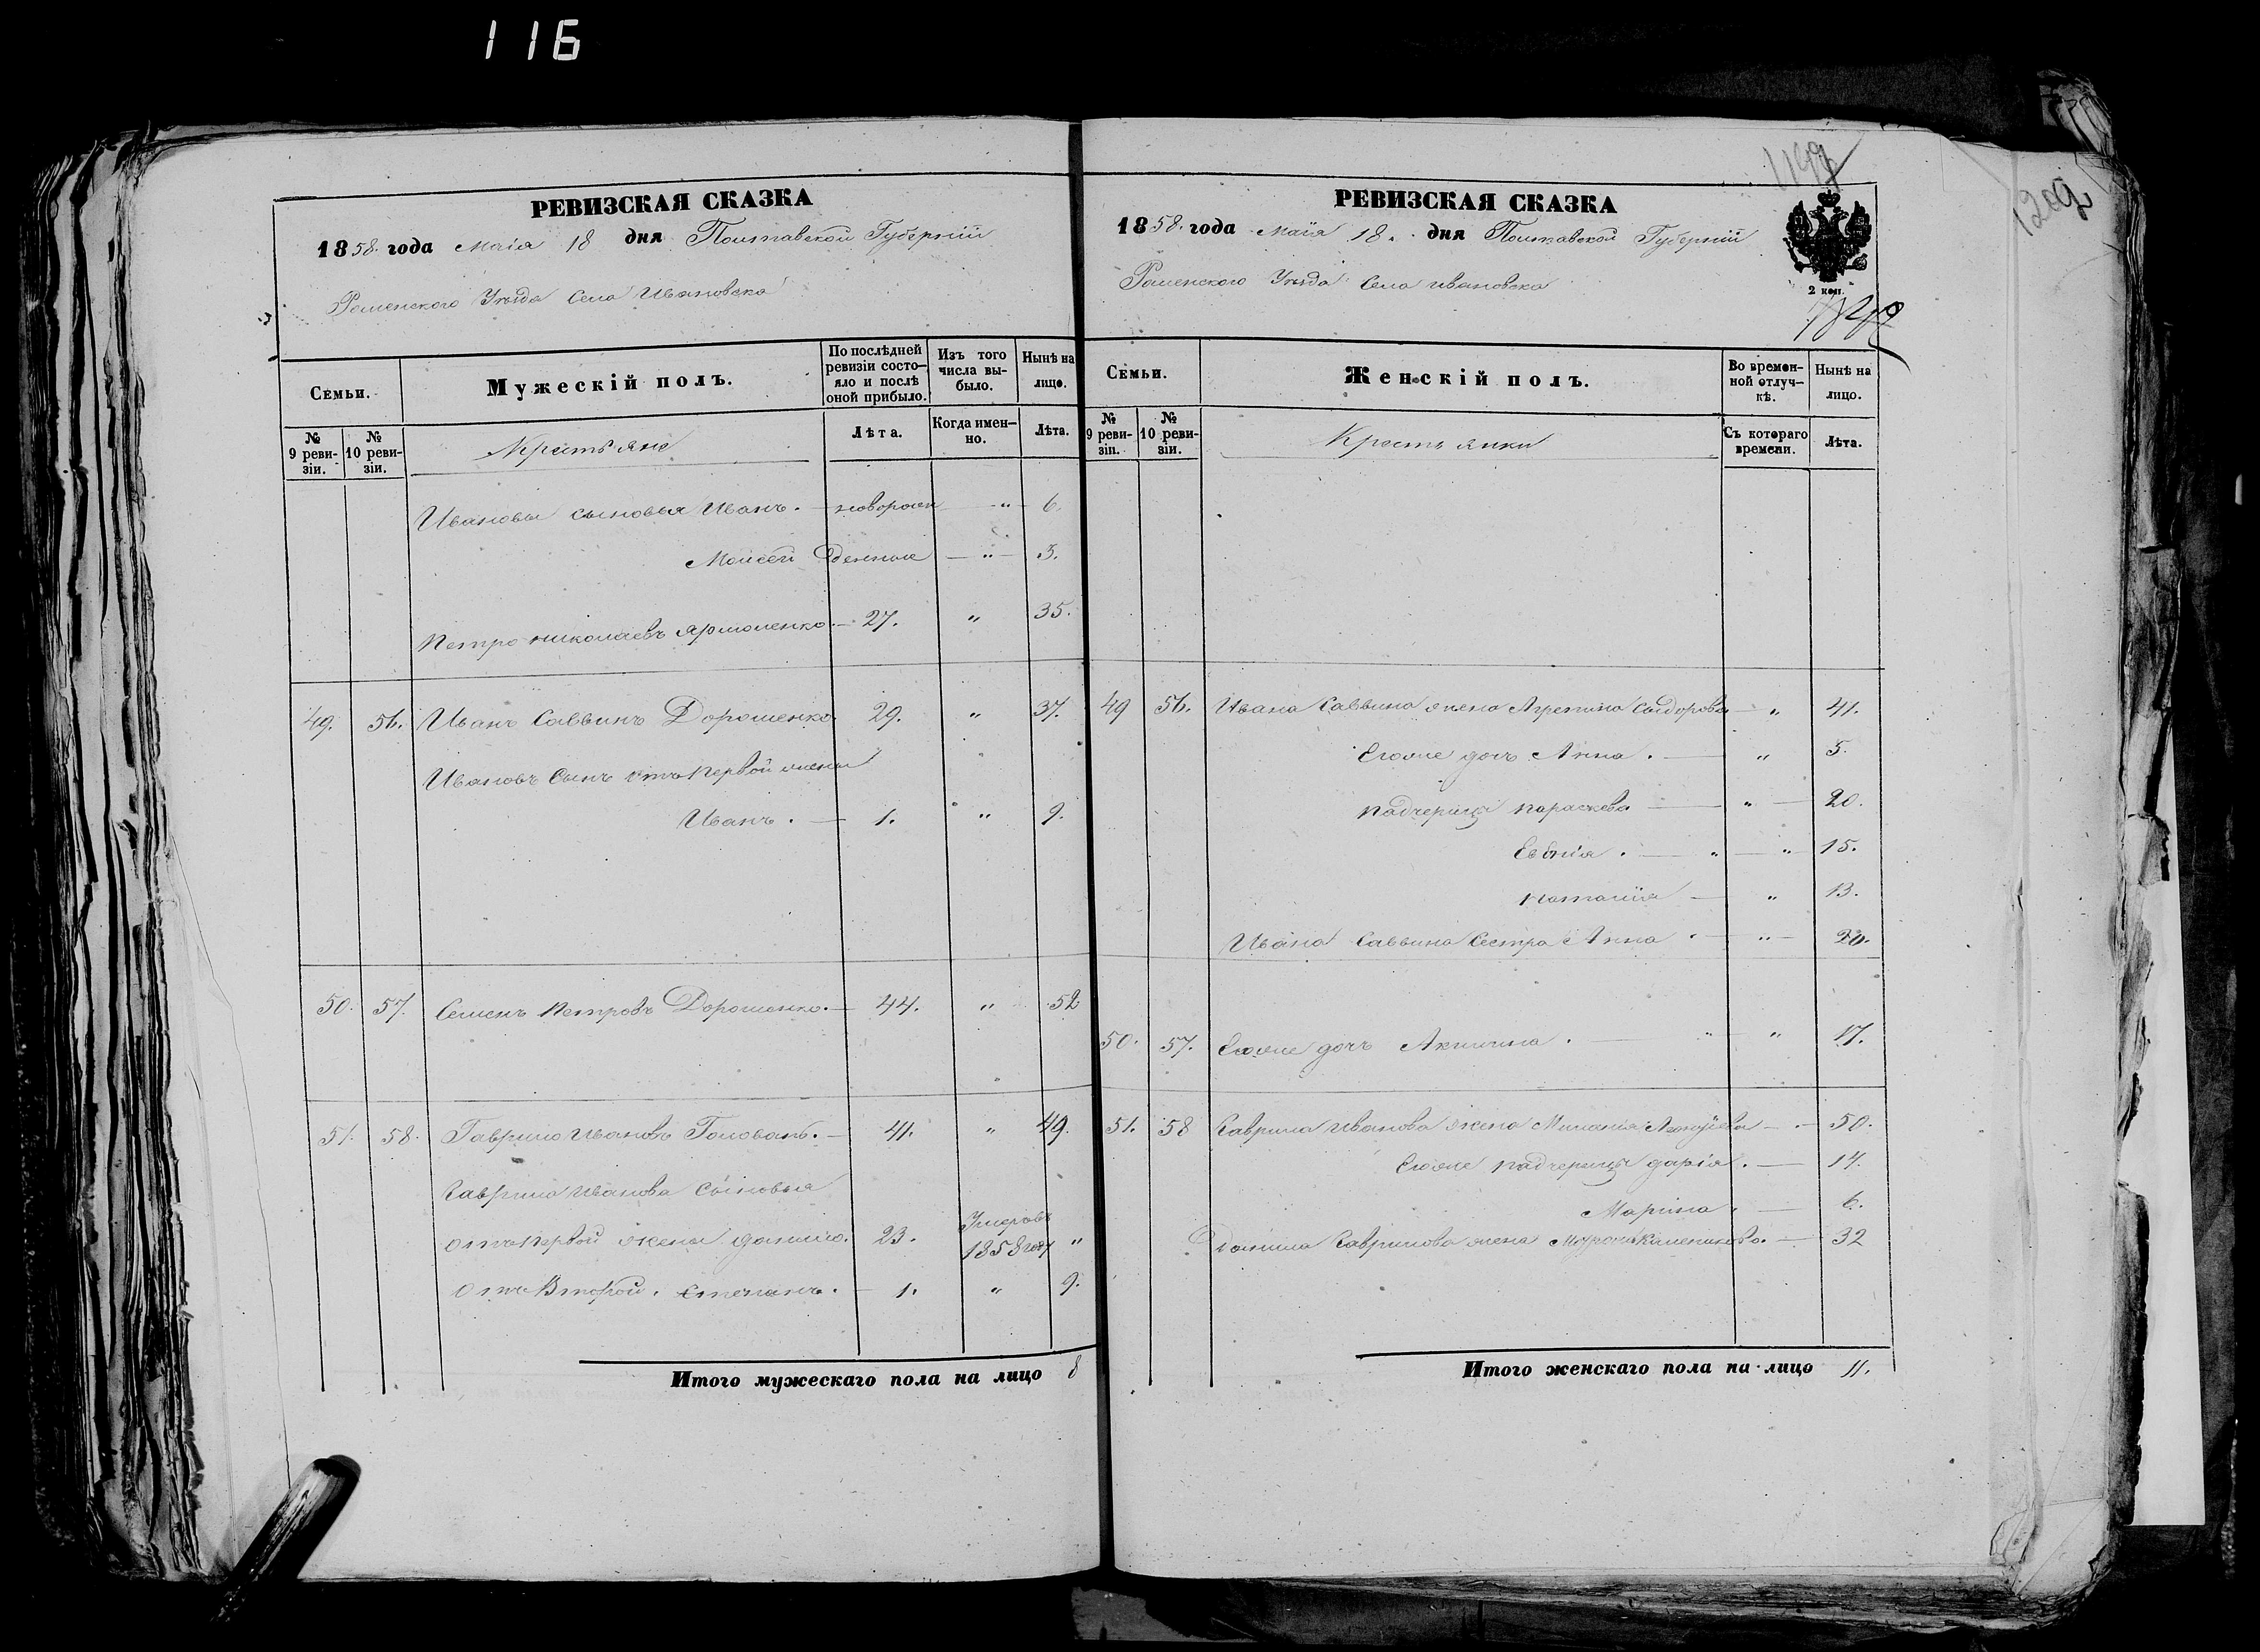 116
РЕВИЗСКАЯ СКАЗКА
1858. года Маія 18 дня Полтавской Губерніи
Роменского Уѣзда Села Ивановска
Семьи.
Мужескій полъ.
По послѣдней ревизіи состо-
яло и послѣ
оной прибыло.
Изъ того
числа вы-
было.
Нынѣ на
лицо.
№
9 реви-
зіи.
№
10 реви-
зіи.
Крестьяне
Лѣта.
Когда имен-
но.
Лѣта.
Ивановы сыновья Иванъ. — новорож " 6.
Моисей денные — " — 3.
Петро Николаевъ Ярмоленко — 27. " 35.
49. 56. Иванъ Саввинъ Дорошенко 29. " 37.
Ивановъ Сынъ отъ первой жены
Иванъ. — 1. " 9.
50. 57. Семенъ Петровъ Дорошенко. — 44. " 52
51. 58. Гаврило Ивановъ Головань. — 41. " 49.
Гаврила Иванова Сыновья
отъ первой жены Данило. 23. Умеръ въ
1858 году "
отъ Второй. Степанъ. — 1. " 9.
Итого мужескаго пола на лицо 8
РЕВИЗСКАЯ СКАЗКА
1858. года Маія 18. дня Полтавской Губерніи
Роменского Уѣзда Села Ивановска
2 коп.
Семьи.
Женскій полъ.
Во времен-
ной отлуч-
кѣ.
Нынѣ на
лицо.
№
9 реви-
зіи.
№
10 реви-
зіи.
Крестьянки
Съ котораго
времени.
Лѣта.
49 56. Ивана Саввина жена Агрепина Сыдорова — " 41.
Егоже дочь Анна. — " 5.
Падчерицы Параскева — " — 20.
Евгнія. — " — " — 15.
Наталія — " 13.
Ивана Саввина Сестра Анна — " — 20.
50. 57. Егоже дочь Акилина. — " — " 17.
51. 58 Гаврила Иванова жена Миланія — 50.
Егоже падчерицы Дарія. — 17.
Марина. — 6.
Данила Гаврилова жена — 32
Итого женскаго пола на лицо 11.